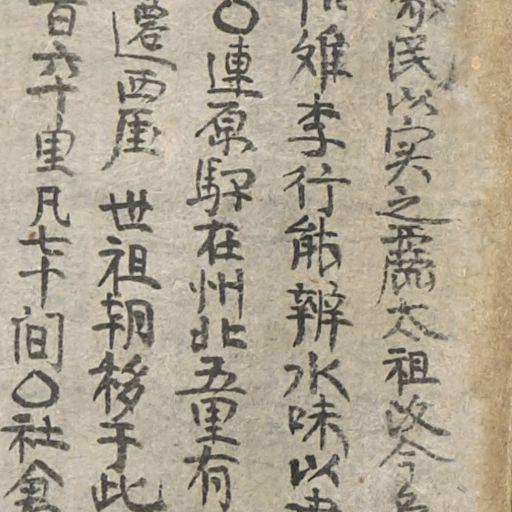 民以实之麗太祖改今
难李行能辨水味以
○連原驛在州北五里有
遷西厓世祖朝移于此
百六十里凡七十间○社倉